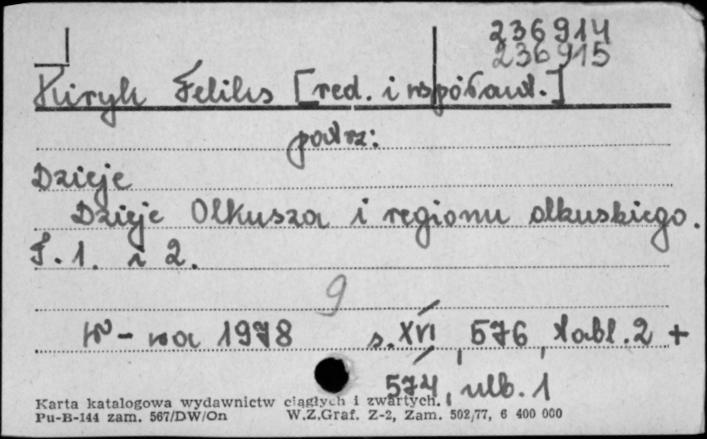 236914
236915
Kiryk Feliks [red. i współaut.]
patrz:
Dzieje
Dzieje Olkusza i regionu olkuskiego.
T. 1. i 2.
9
W-wa 1978 s. XVI, 576, tabl. 2 +
574, nlb. 1
Karta katalogowa wydawnictw ciągłych i zwartych.
Pu-B-144 zam. 567/DW/On W.Z.Graf. Z-2, Zam. 502/77, 6 400 000